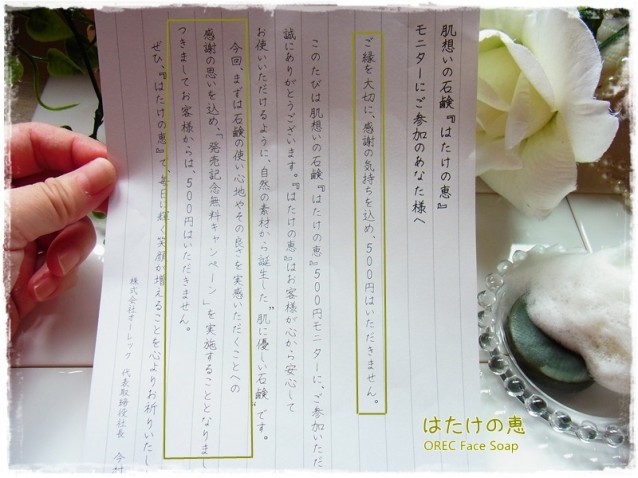 肌想いの石鹸『はたけの恵』
モニターにご参加のあなた様へ
ご縁を大切に、感謝の気持ちを込め、500円はいただきません。
このたびは肌想いの石鹸『はたけの恵』500円モニターに、ご参加いただ
誠にありがとうございます。『はたけの恵』はお客様が心から安心して
お使いいただけるように、自然の素材から誕生した“肌に優しい石鹸”です。
今回、まずは石鹸の使い心地やその良さを実感いただくことへの
感謝の思いを込め、「発売記念無料キャンペーン」を実施することとなりまし
つきましてお客様からは、500円はいただきません。
ぜひ、『はたけの恵』で、毎日に輝く笑顔が増えることを心よりお祈りいたし
株式会社オーレック 代表取締役社長 今村
はたけの恵
OREC Face Soap